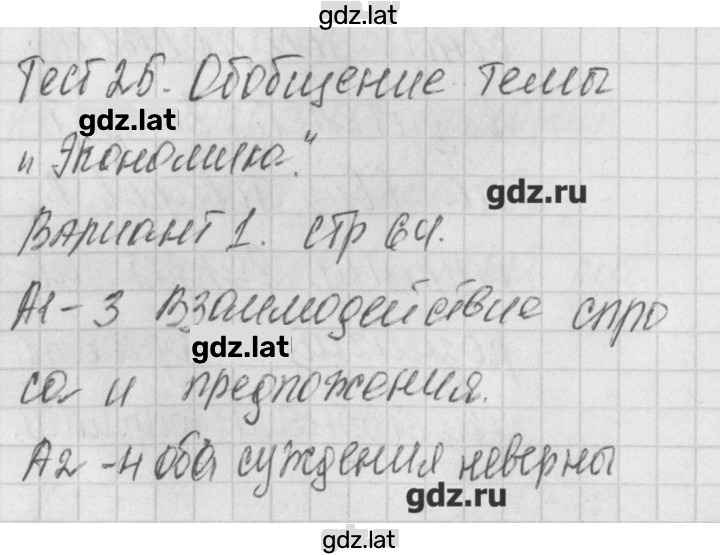 gdz.lat
Тест 25. Обобщение темы
gdz.lat
„Экономика."
gdz.ru
Вариант 1. стр 64.
А1-3 Взаимодействие спро
gdz.lat
са и предложения.
А2-4 оба суждения неверны
gdz.ru
gdz.lat